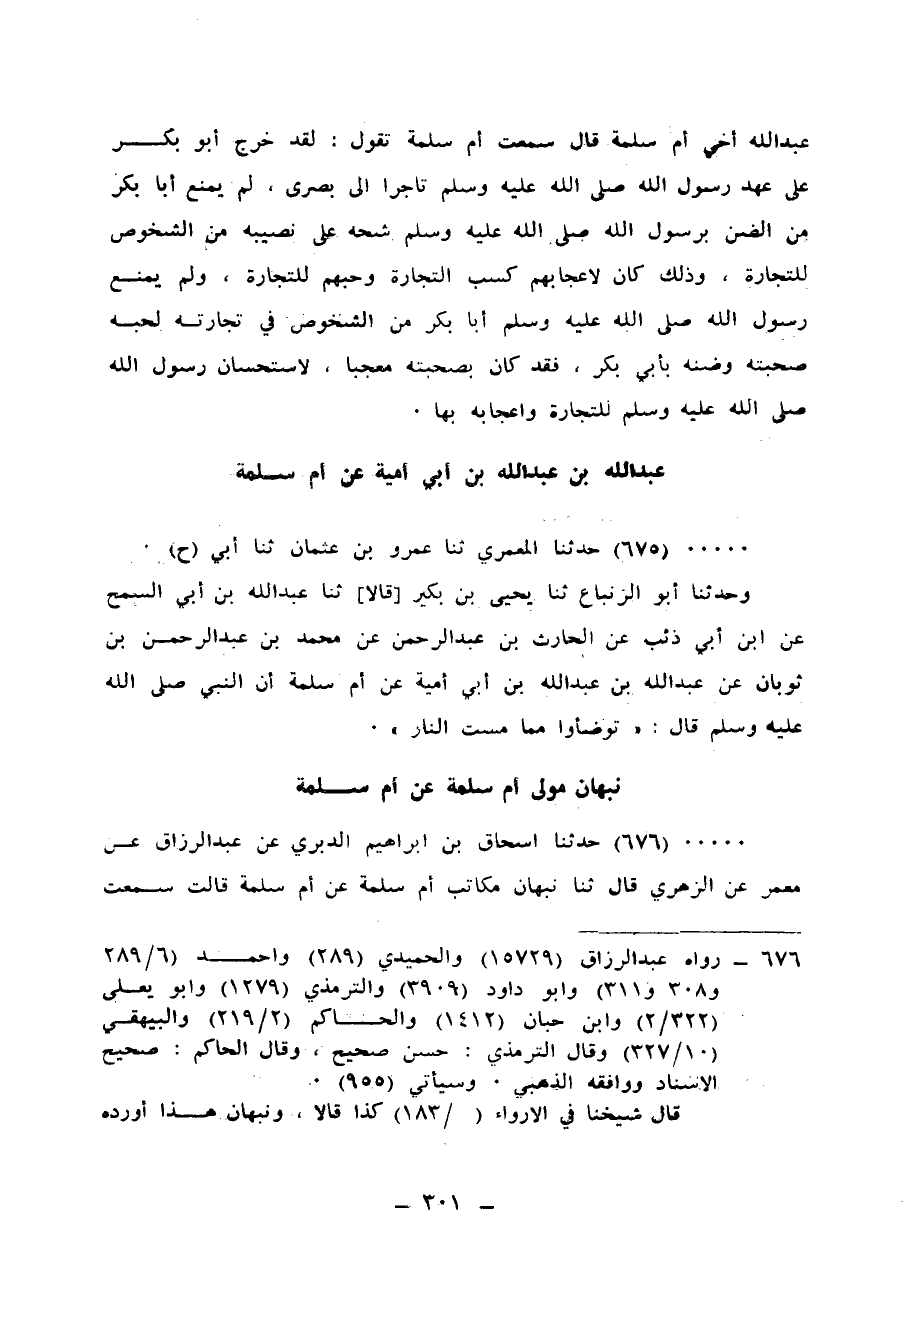 عبدالله أخي أم سلمة قال سمعت أم سلمة تقول : لقد خرج أبو بكر
على عهد رسول الله صلى الله عليه وسلم تاجرا الى بصرى ، لم يمنع أبا بكر
من الضن برسول الله صلى الله عليه وسلم شحه على نصيبه من الشخوص
للتجارة ، وذلك كان لاعجابهم كسب التجارة وحبهم للتجارة ، ولم يمنع
رسول الله صلى الله عليه وسلم أبا بكر من الشخوص في تجارته لحبه
صحبته وضنه بأبي بكر ، فقد كان بصحبته معجبا ، لاستحسان رسول الله
صلى الله عليه وسلم للتجارة واعجابه بها ٠
عبدالله بن عبدالله بن أبي أمية عن أم سلمة
٠٠٠٠٠ (٦٧٥) حدثنا المعمري ثنا عمرو بن عثمان ثنا أبي (ح) ٠
وحدثنا أبو الزنباع ثنا يحيى بن بكير [قالا] ثنا عبدالله بن أبي السمح
عن ابن أبي ذئب عن الحارث بن عبدالرحمن عن محمد بن عبدالرحمن بن
ثوبان عن عبدالله بن عبدالله بن أبي أمية عن أم سلمة أن النبي صلى الله
عليه وسلم قال : « توضأوا مما مست النار » ٠
نبهان مولى أم سلمة عن أم سلمة
٠٠٠٠٠ (٦٧٦) حدثنا اسحاق بن ابراهيم الدبري عن عبدالرزاق عن
معمر عن الزهري قال ثنا نبهان مكاتب أم سلمة عن أم سلمة قالت سمعت
٦٧٦ ـ رواه عبدالرزاق (١٥٧٢٩) والحميدي (٢٨٩) واحمد (٢٨٩/٦
و٣٠٨ و٣١١) وابو داود (٣٩٠٩) والترمذي (١٢٧٩) وابو يعلى
(٢/٣٢٢) وابن حبان (١٤١٢) والحاكم (٢١٩/٢) والبيهقي
(٣٢٧/١٠) وقال الترمذي : حسن صحيح ، وقال الحاكم : صحيح
الاسناد ووافقه الذهبي ٠ وسيأتي (٩٥٥) ٠
قال شيخنا في الارواء ( /١٨٣) كذا قالا ، ونبهان هذا أورده
ـ ٣٠١ ـ